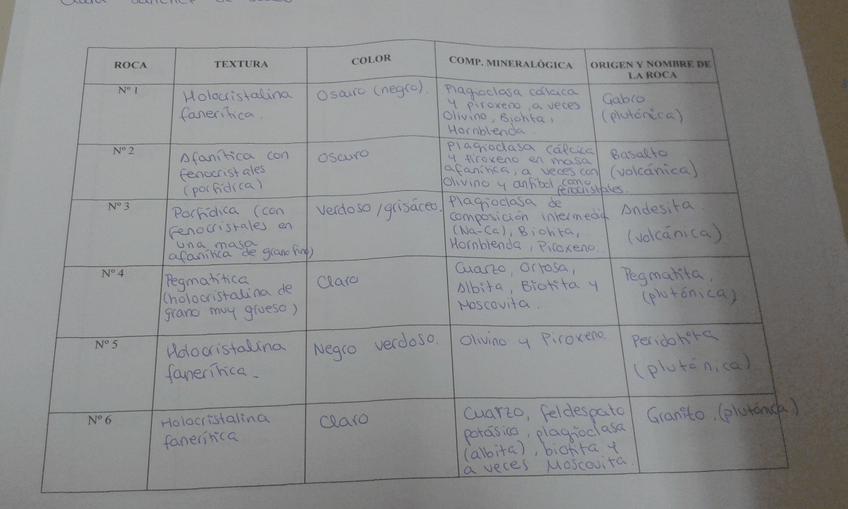 ROCA TEXTURA COLOR COMP. MINERALÓGICA ORIGEN Y NOMBRE DE
LA ROCA
Nº 1
Holocristalina
fanerítica.
Oscuro (negro).
Plagioclasa cálcica
y piroxeno, a veces
Olivino, Biotita,
Hornblenda.
Gabro
(plutónica)
Nº 2
Afanítica con
fenocristales
(porfídica)
Oscuro
Plagioclasa cálcica
y piroxeno en masa
afanítica, a veces con
Olivino y anfibol como
fenocristales.
Basalto
(volcánica)
Nº 3
Porfídica (con
fenocristales en
una masa
afanítica de grano fino)
Verdoso/grisáceo.
Plagioclasa de
composición intermedia
(Na-Ca), Biotita,
Hornblenda, Piroxeno.
Andesita.
(volcánica)
Nº 4
Pegmatítica
(holocristalina de
grano muy grueso)
Claro
Cuarzo, Ortosa,
Albita, Biotita y
Moscovita.
Pegmatita.
(plutónica)
Nº 5
Holocristalina
fanerítica.
Negro verdoso.
Olivino y Piroxeno.
Peridotita
(plutónica)
Nº 6
Holocristalina
fanerítica
Claro
Cuarzo, feldespato
potásico, plagioclasa
(albita), biotita y
a veces Moscovita.
Granito. (plutónica)